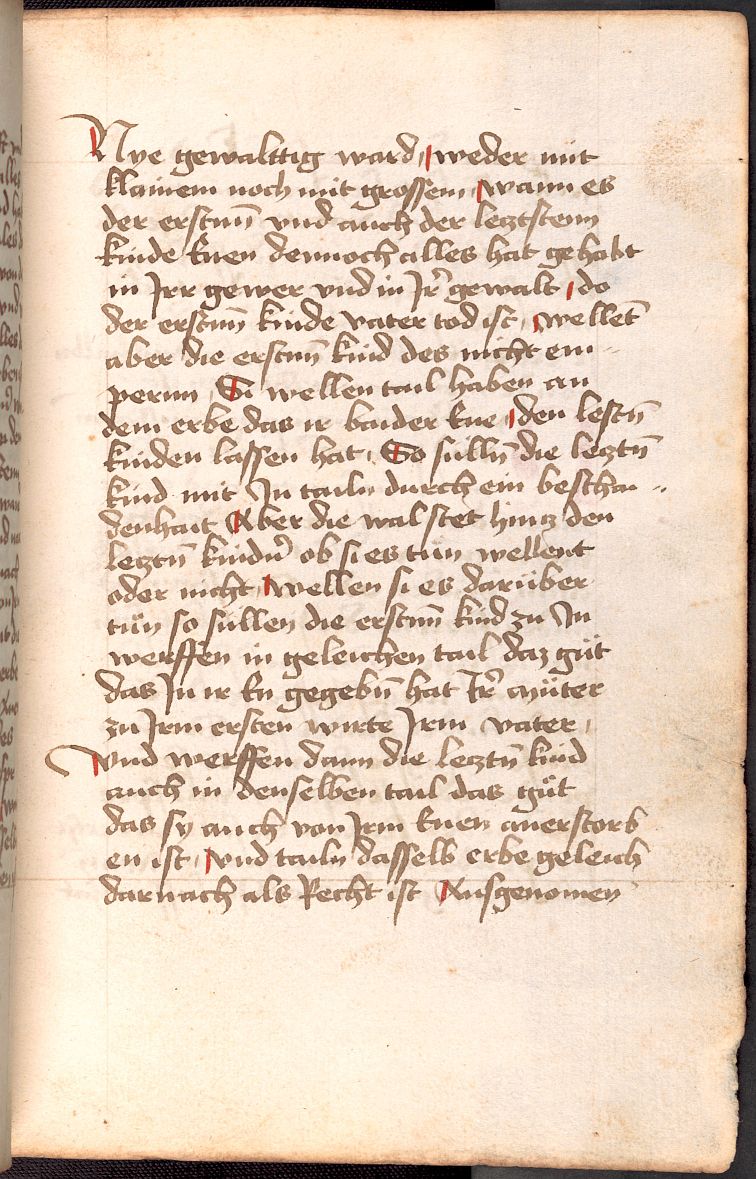 Nye gewalttig ward, weder mit
klainem noch mit grossem, wann es
der erstnn̄ vnd auch der letztstenn
kinde Enen dennoch alles hat gehabt
in Irr gewer vnd in Ir̄ gewalt, do
der erstnn̄ kinde vater tod ist, wellet̄
aber die erstnn̄ kind des nicht em-
pernn, Si wellen tail haben an
dem erbe das ir baider Ene, den lestn̄
kinden lassen hat, So sülln̄ die leztn̄
kind mit In tailn durch ein beschai-
denhait Aber die wal stet hincz den
leztn̄ kindn̄ ob si es tün wellent
oder nicht, wellen si es darüber
tün so süllen die erstnn̄ kind zu In
werffen in geleichen tail daz güt
das In ir En gegebn̄ hat Ir̄ müter
zu Irm ersten wirte Irm vater,
vnd werffen dann die leztn̄ kind
auch in denselben tail das güt
das sy auch von Irm Enen anerstorb
en ist, vnd tailn dasselb erbe geleich
darnach als Recht ist Ausgenomen